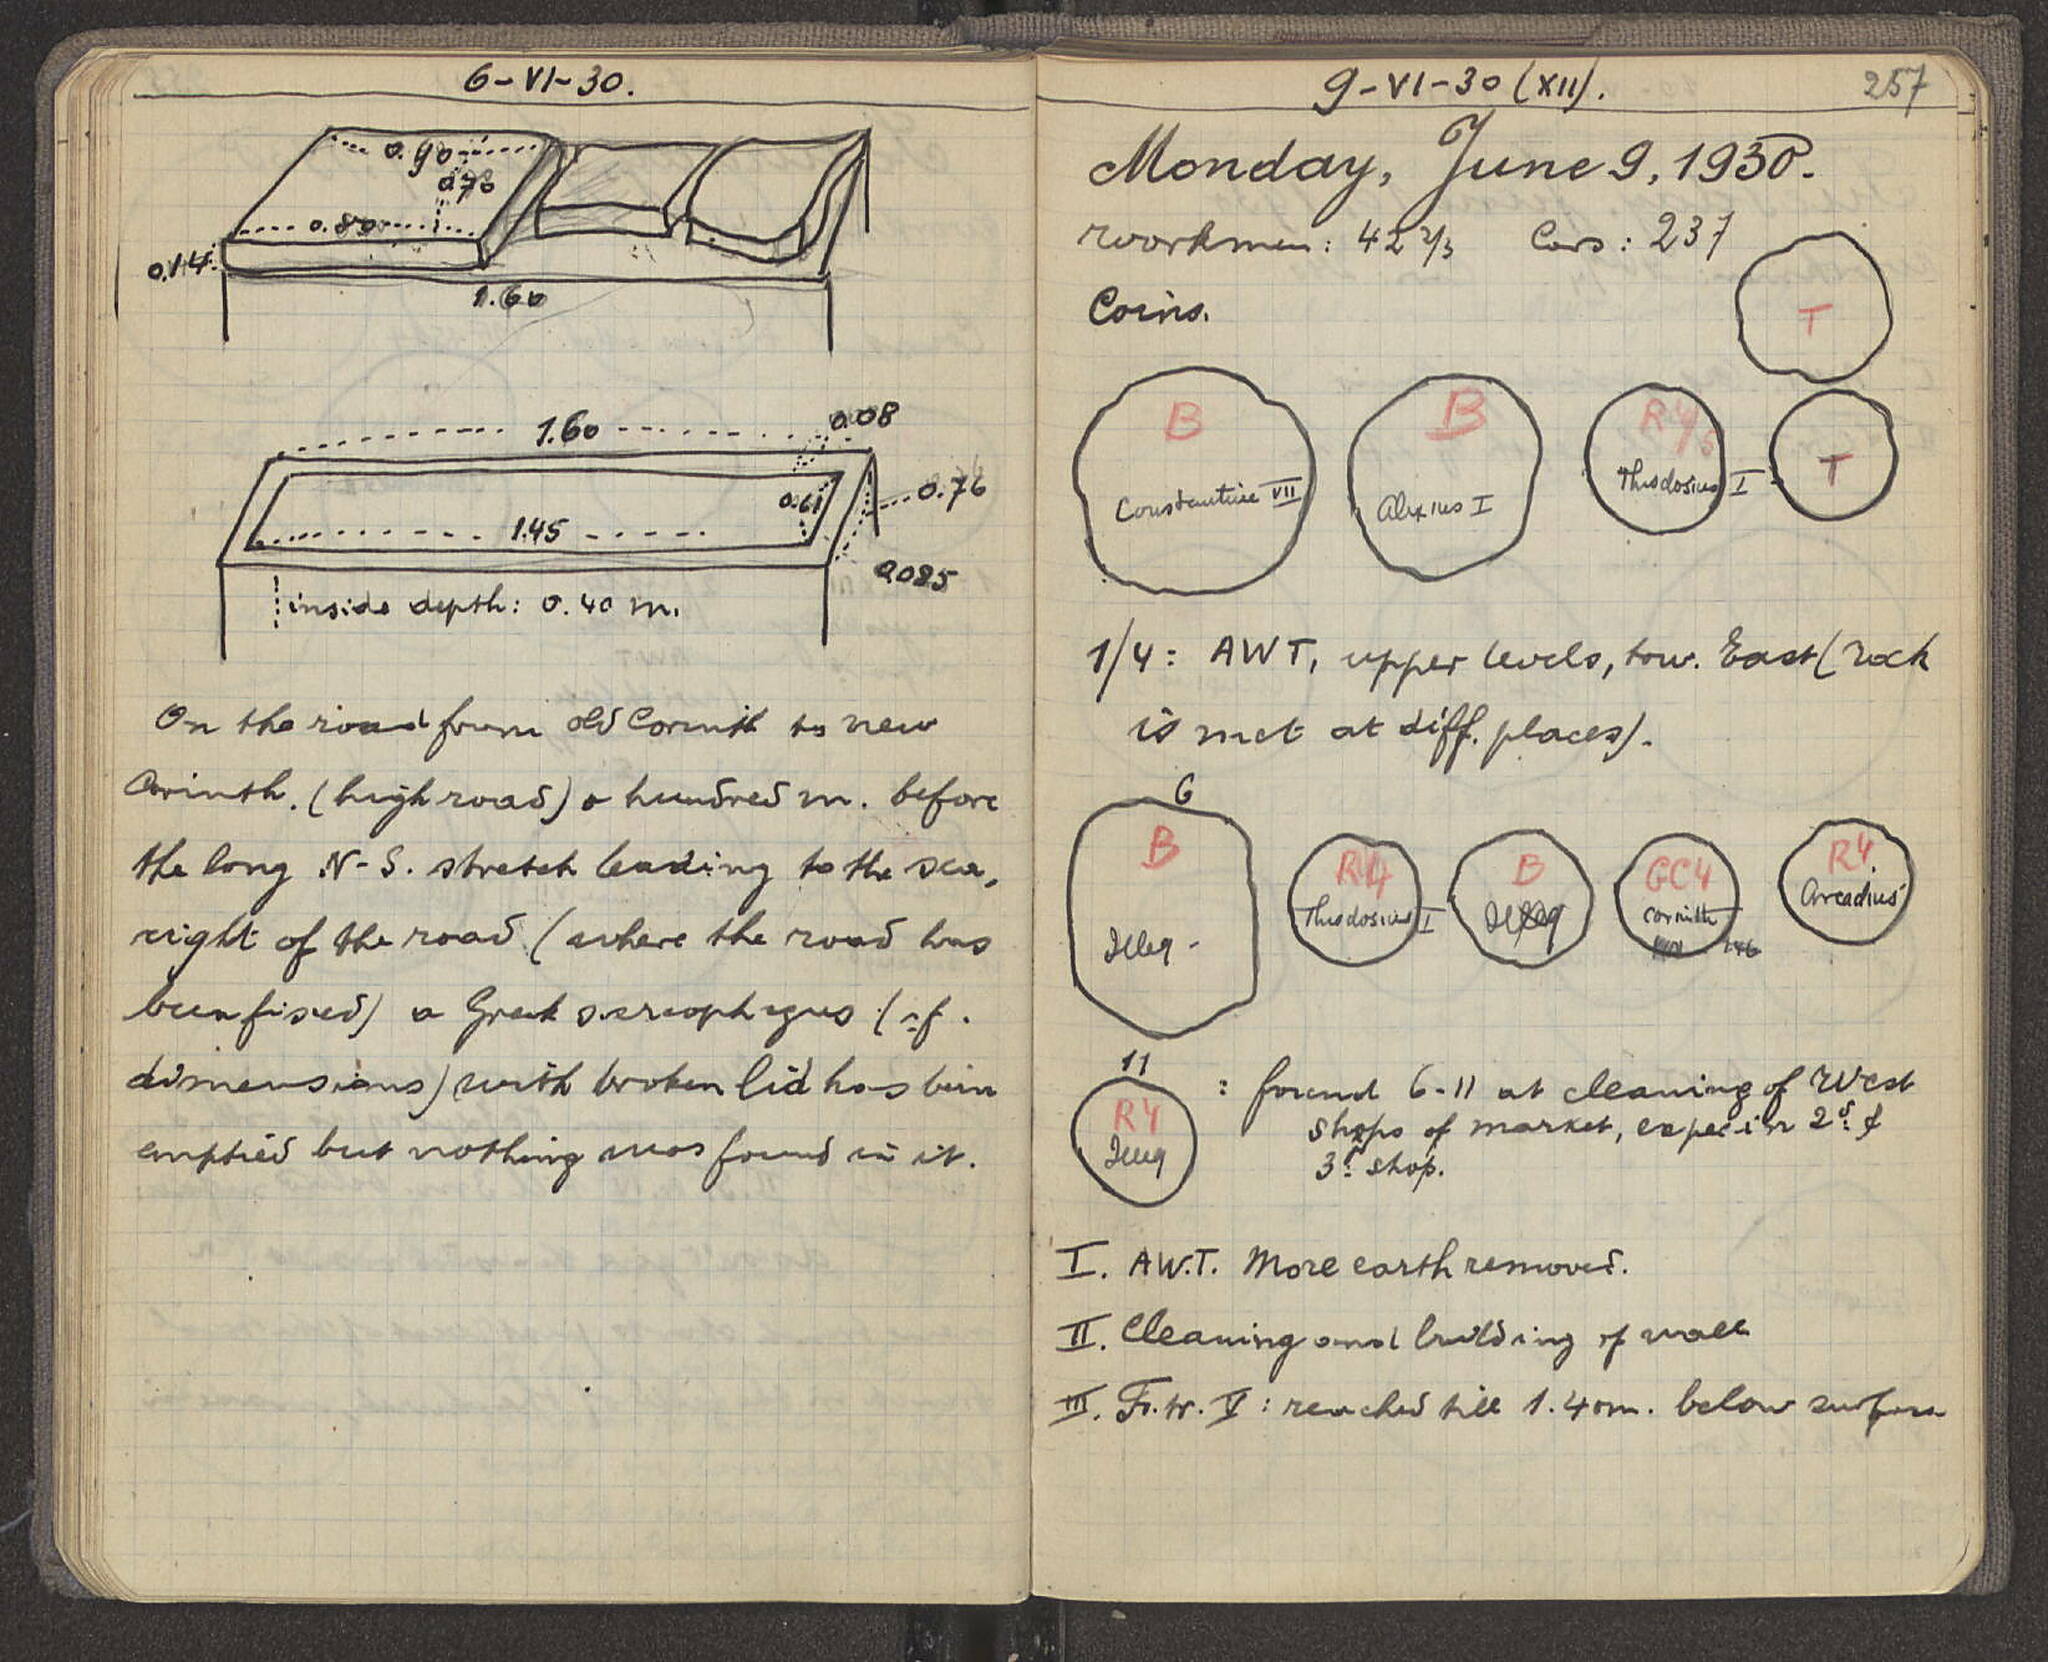 6-VI-30.
0.90
0.70
0.80
0.14
1.60
1.60
0.08
0.61
0.76
1.45
0.085
inside depth: 0.40 m.
On the road from old Corinth to new
Corinth. (high road) a hundred m. before
the long N-S. stretch leading to the sea,
right of the road (where the road has
been fixed) a Greek sarcophagus (cf.
dimensions) with broken lid has been
emptied but nothing was found in it.
9-VI-30 (XII).
257
Monday, June 9, 1930.
workmen: 42 2/3 Cars: 237
Coins.
T
B
Constantine VII
B
Alexius I
R4/5
Theodosius I
T
1/4: AWT, upper levels, tow. East (rock
is met at diff. places).
6
B
Illeg -
R4
Theodosius I
B
Illeg
GC4
Corinth
146
R4
Arcadius
11
R4
Illeg
: found 6-11 at cleaning of West
shops of market, espec in 2d &
3d shop.
I. AW.T. More earth removed.
II. Cleaning and building of wall
III. Fr. tr. V: reached till 1.40m. below surface